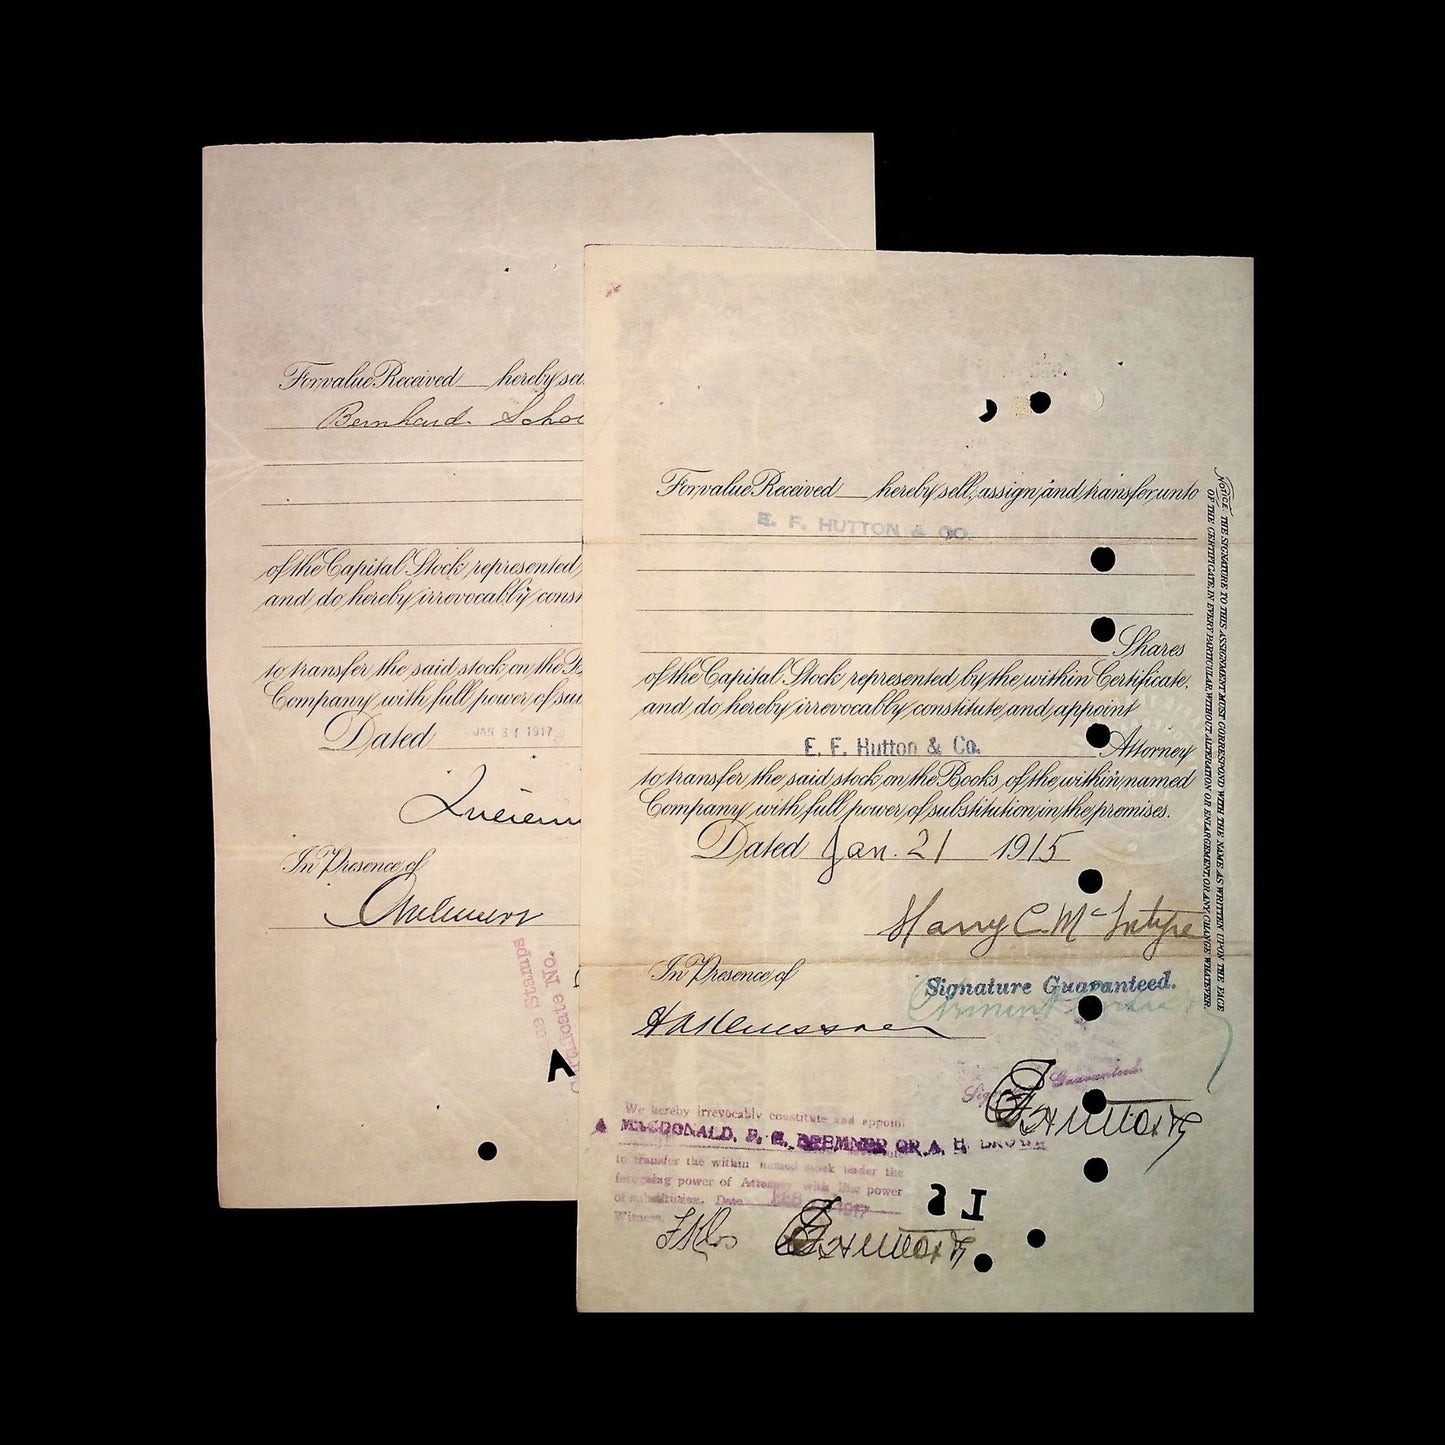 For value Received hereby sel
Bernhard
of the Capital Stock represented
and do hereby irrevocably const
to transfer the said stock on the B
Company with full power of su
Dated JAN 31 1917
In Presence of
Stamps
No.
For value Received hereby sell, assign and transfer unto
E. F. HUTTON & CO.
Shares
of the Capital Stock represented by the within Certificate.
and do hereby irrevocably constitute and appoint
E. F. Hutton & Co. Attorney
to transfer the said stock on the Books of the within named
Company with full power of substitution in the premises.
Dated Jan. 21 1915
Harry C. McIntyre
In Presence of
Signature Guaranteed.
Signature Guaranteed.
We hereby irrevocably constitute and appoint
MACDONALD, F. G. BREMNER OR A. H.
to transfer the within named stock under the
foregoing power of Attorney with like power
of substitution. Date FEB 1917
Witness
NOTICE. THE SIGNATURE TO THIS ASSIGNMENT MUST CORRESPOND WITH THE NAME AS WRITTEN UPON THE FACE
OF THE CERTIFICATE, IN EVERY PARTICULAR, WITHOUT ALTERATION OR ENLARGEMENT, OR ANY CHANGE WHATEVER.